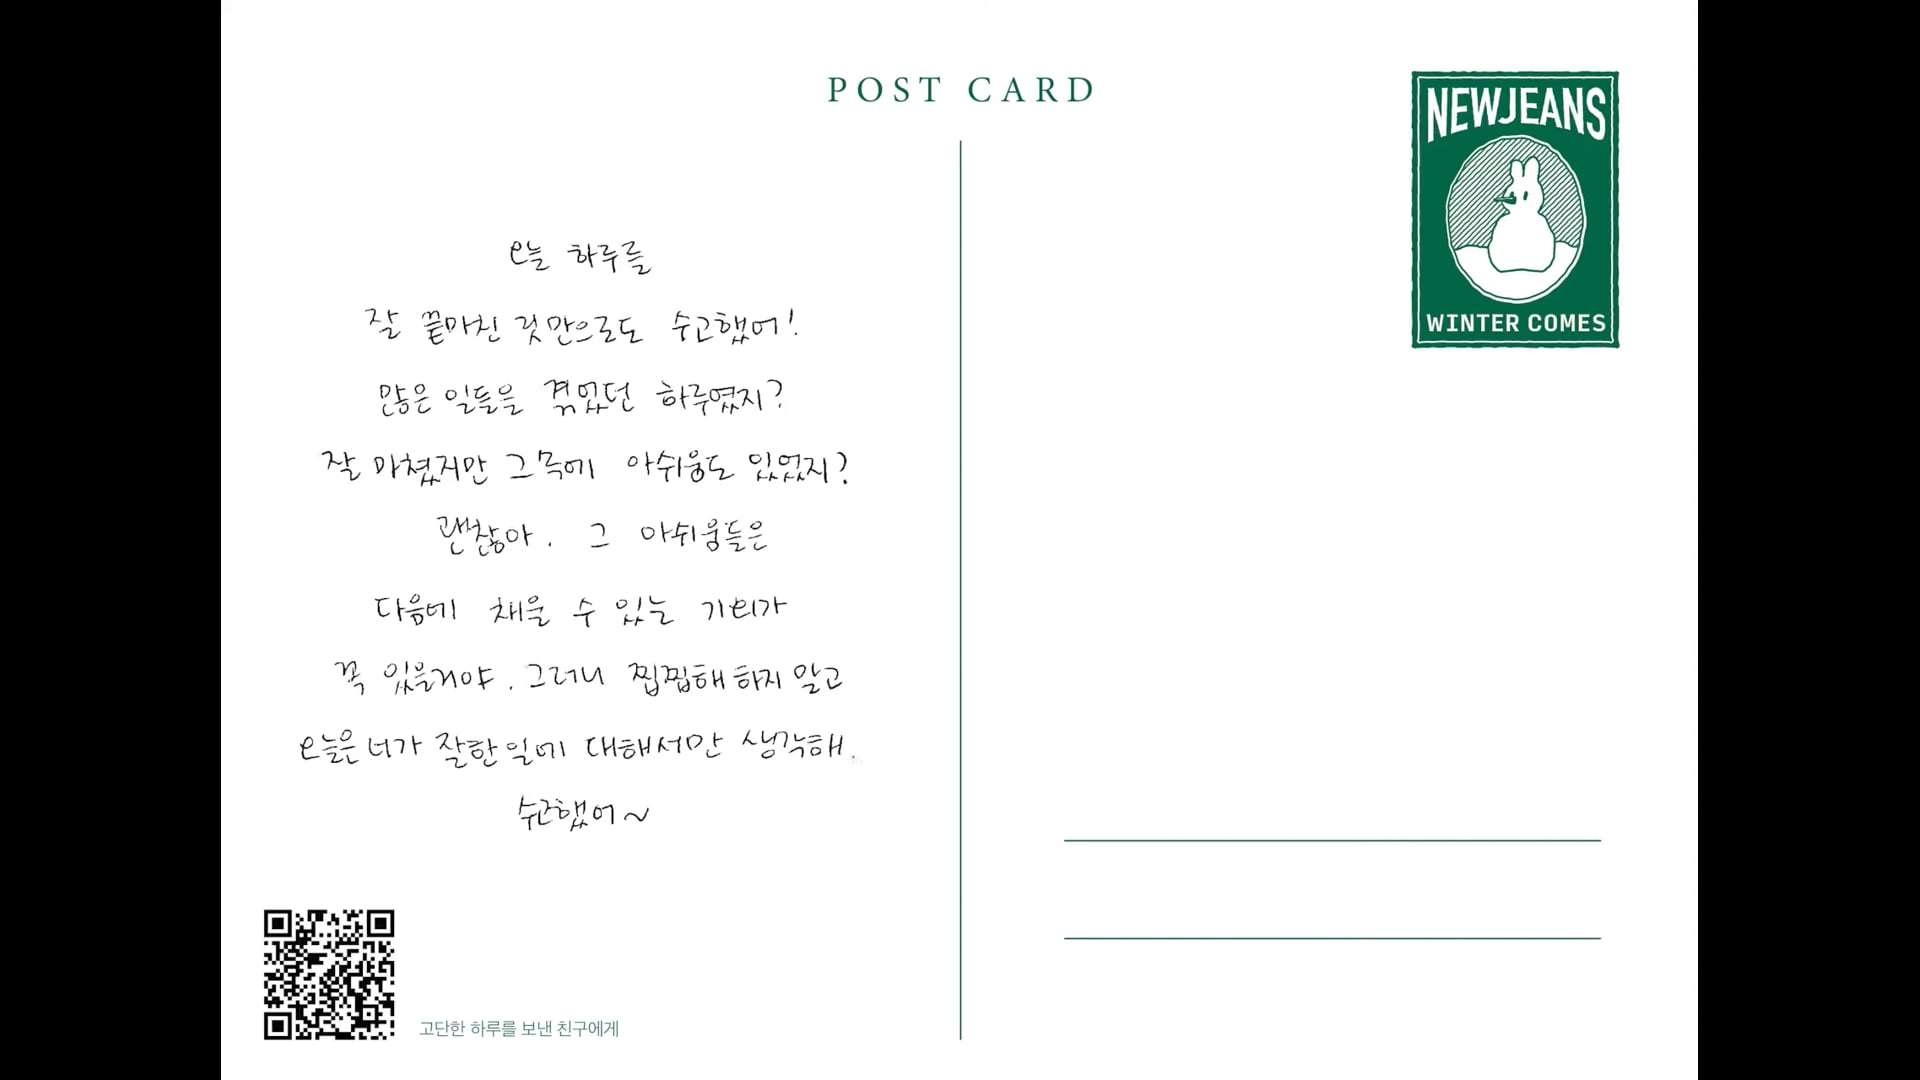 POST CARD
NEWJEANS
WINTER COMES
오늘 하루를
잘 끝마친 것만으로도 수고했어!
많은 일들을 겪었던 하루였지?
잘 마쳤지만 그 속에 아쉬움도 있었지?
괜찮아. 그 아쉬움들은
다음에 채울 수 있는 기회가
꼭 있을거야. 그러니 찝찝해 하지 말고
오늘은 너가 잘한 일에 대해서만 생각해.
수고했어~
고단한 하루를 보낸 친구에게